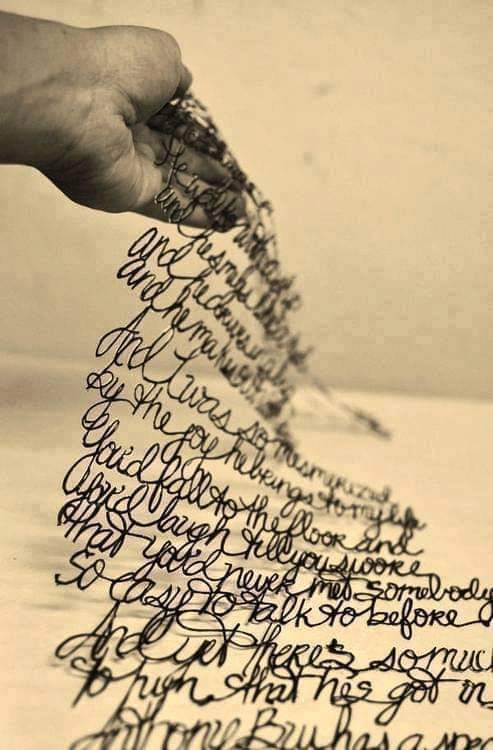 He
and he smells like
and he draws
and he
And I was so mesmerized
by the joy he brings to my life
You'd fall to the floor and
you'd laugh till you swore
that you'd never met somebody
So easy to talk to before
And yet there's so muc
to him that he's got in
Anthony has a spe